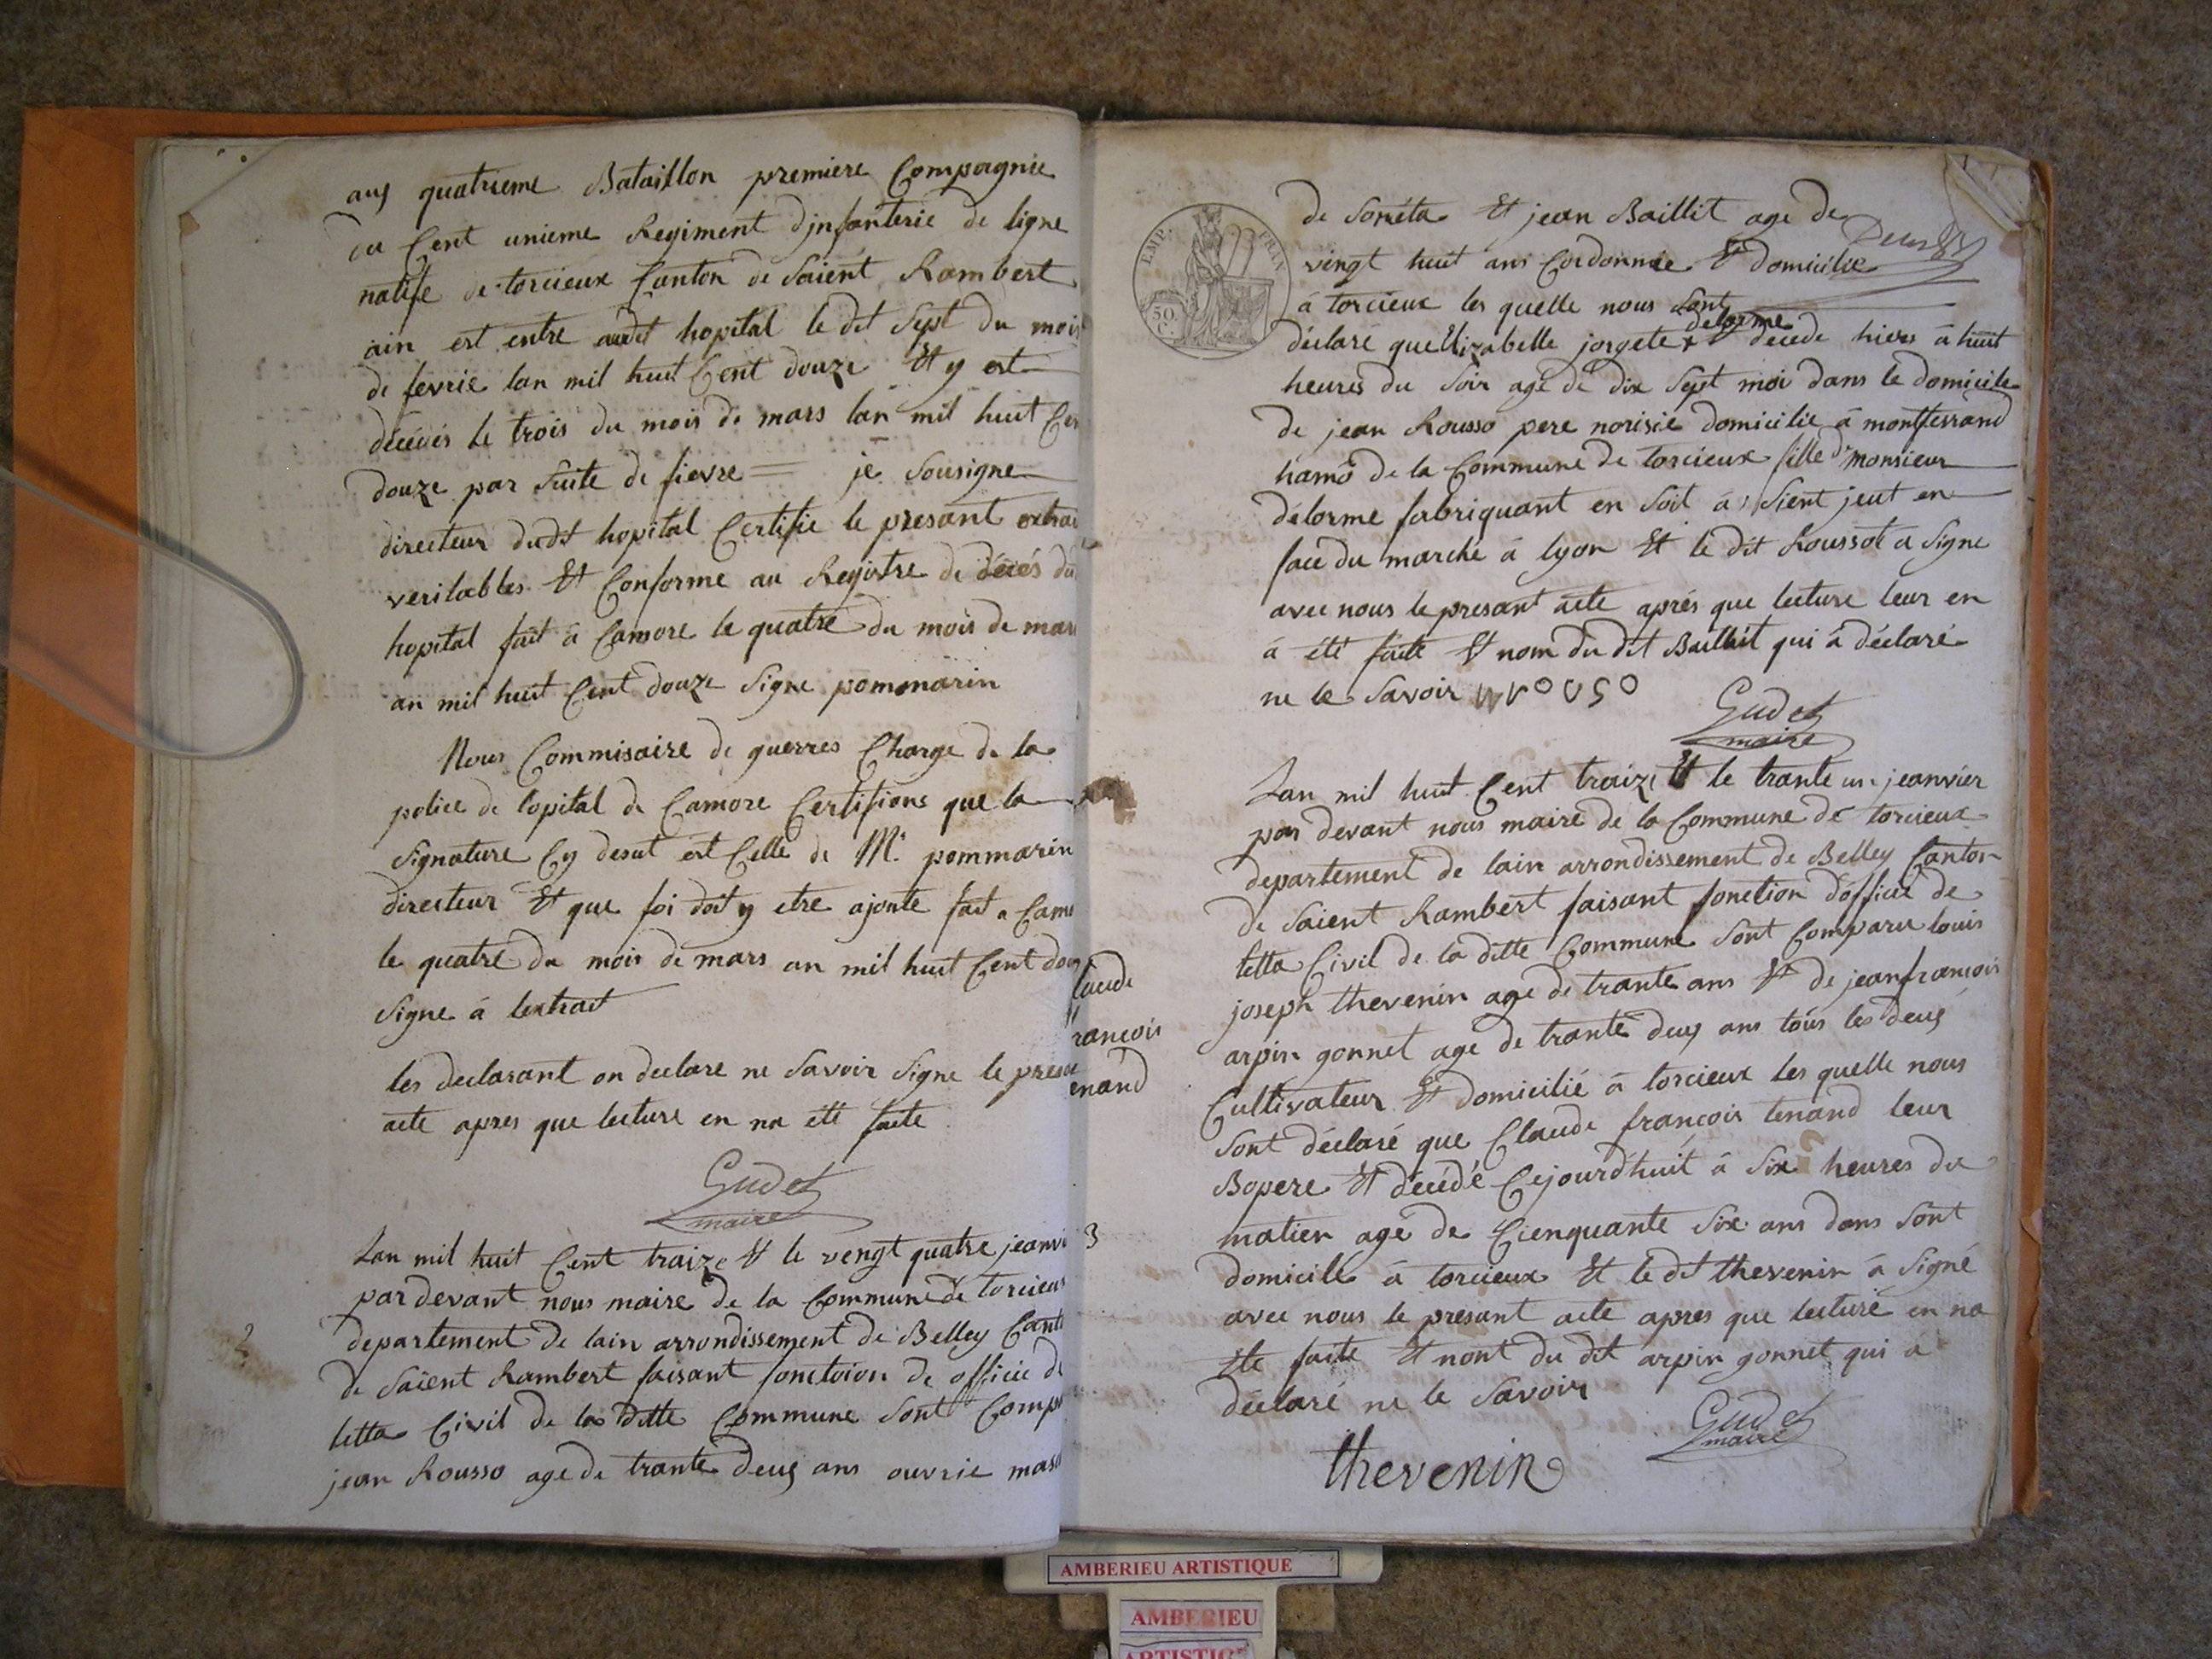 aus quatrieme Bataillon premiere Compagnie
du Cent unieme Regiment dinfanterie de ligne
natife de torcieux Canton de Saient Rambert
ain est entre audit hopital le dit Sept du mois
de fevrie lan mil huit Cent douze Et y est
décédés le trois du mois de mars lan mil huit Cen
douze par Suite de fievre = je Sousigne
directeur dudit hopital Certifie le presant extrai
veritables Et Conforme au Registre de décés du
hopital fait à Camore le quatre du mois de mars
an mil huit Cent douze Signe pommarin
Nous Commisaire de guerres Charge de la
police de lopital de Camore Certifions que la
Signature Cy desut est Celle de Mr pommarin
directeur Et que foi doit y etre ajoute fait a Camo
le quatre du mois de mars an mil huit Cent dou
Signe á lextrait
les declarant on declare ne Savoir Signe le presa
acte apres que lecture en na été faite
Gudet
maire
2
Lan mil huit Cent traize Et le vengt quatre jeanvi
par devant nous maire de la Commune de torcieux
departement de lain arrondissement de Belley Canto
de Saient Rambert faisant fonctoion de officié de
letta Civil de la ditte Commune Sont Compa
jean Rousso age de trante deus ans ouvrie maso
EMP. FRAN
50 C.
de Sométa Et jean Baillit age de
vingt huit ans Cordonnie Et domicilie
à torcieux les quelle nous Sont
delorme
déclaré que Elizabelle jorgete x Et decede hiers à huit
heures du Soir age de dix Sept moi dans le domicile
de jean Rousso pere norisié domicilie à montferrand
hamo de la Commune de torcieux fille de monsieur
délorme fabriquant en Soit à Sient jeut en
face du marche à lyon Et le dit Roussot a Signe
avec nous le presant acte aprés que lecture leur en
a été faite Et nom du dit Baillit qui à déclaré
ne le Savoir
Gudet
maire
laude
rancois
enand
3
Lan mil huit Cent traize Et le trante un jeanvier
par devant nous maire de la Commune de torcieux
departement de lain arrondissement de Belley Canton
de Saient Rambert faisant fonction dofficié de
letta Civil de la ditte Commune Sont Comparu louis
joseph thevenin age de trante ans Et de jean françois
arpin gonnet age de trante deus ans tous les deus
Cultivateur Et domicilié à torcieux les quelle nous
Sont déclaré que Claude françois tenand leur
Bopere Et décédé Cejourdhuit à Six heures du
matien age de Cienquante Six ans dans Sont
domicile à torcieux Et le dit thevenin à Signé
avec nous le presant acte apres que lecture en na
éte faite Et nont du dit arpin gonnet qui a
déclaré ne le Savoir
Gudet
maire
thevenin
AMBERIEU ARTISTIQUE
AMBERIEU
ARTISTIQ